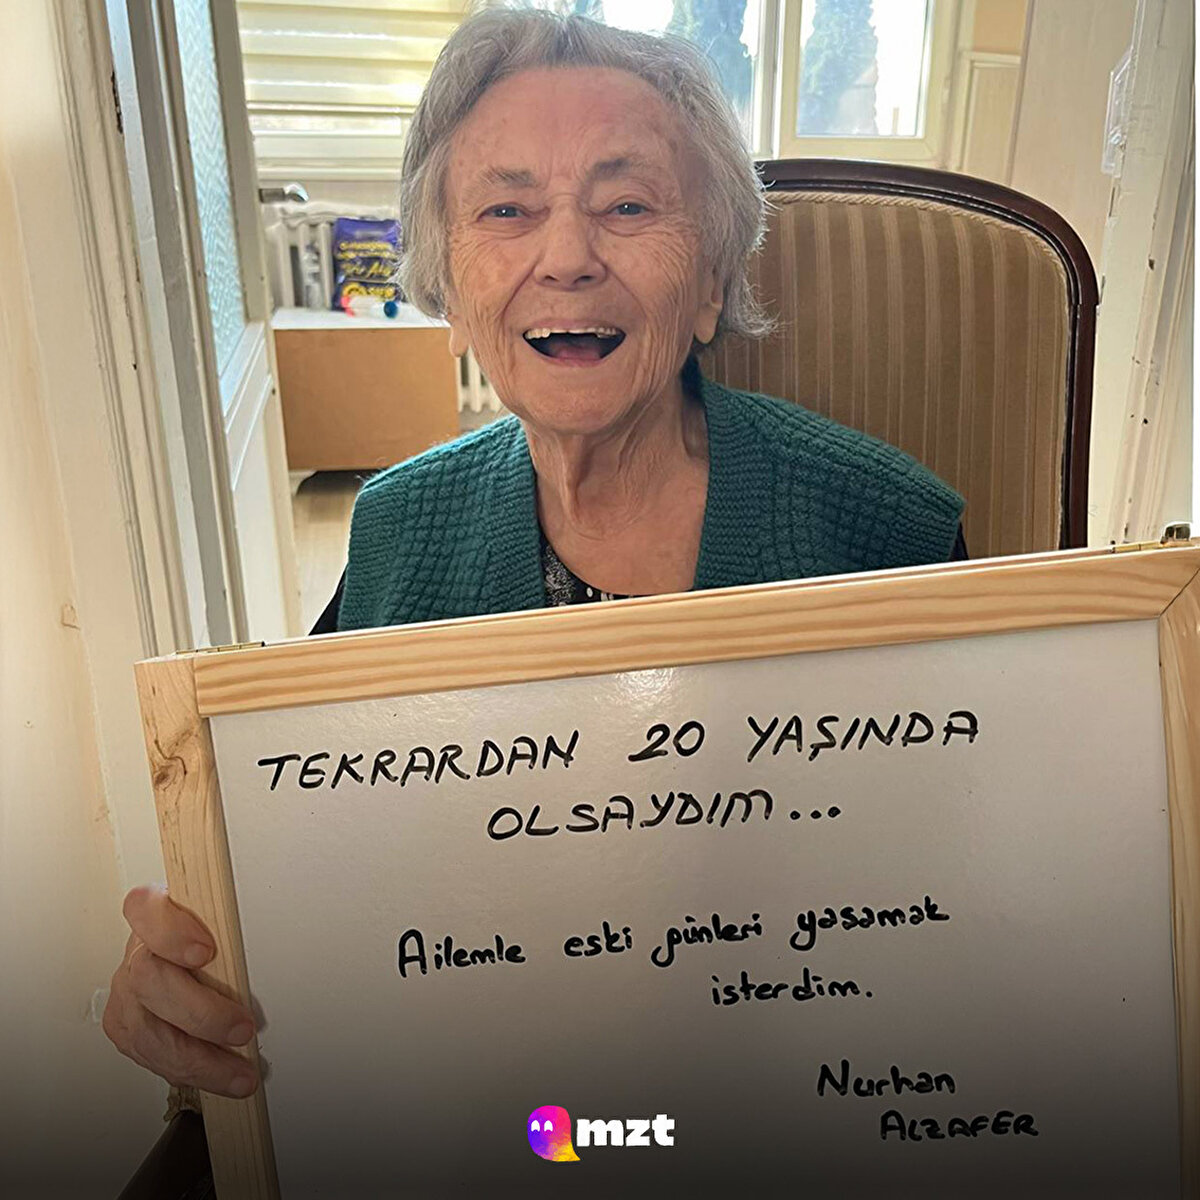 TEKRARDAN 20 YAŞINDA
OLSAYDIM...
Ailemle eski günleri yaşamak
isterdim.
Nurhan
ALZAFER
mzt